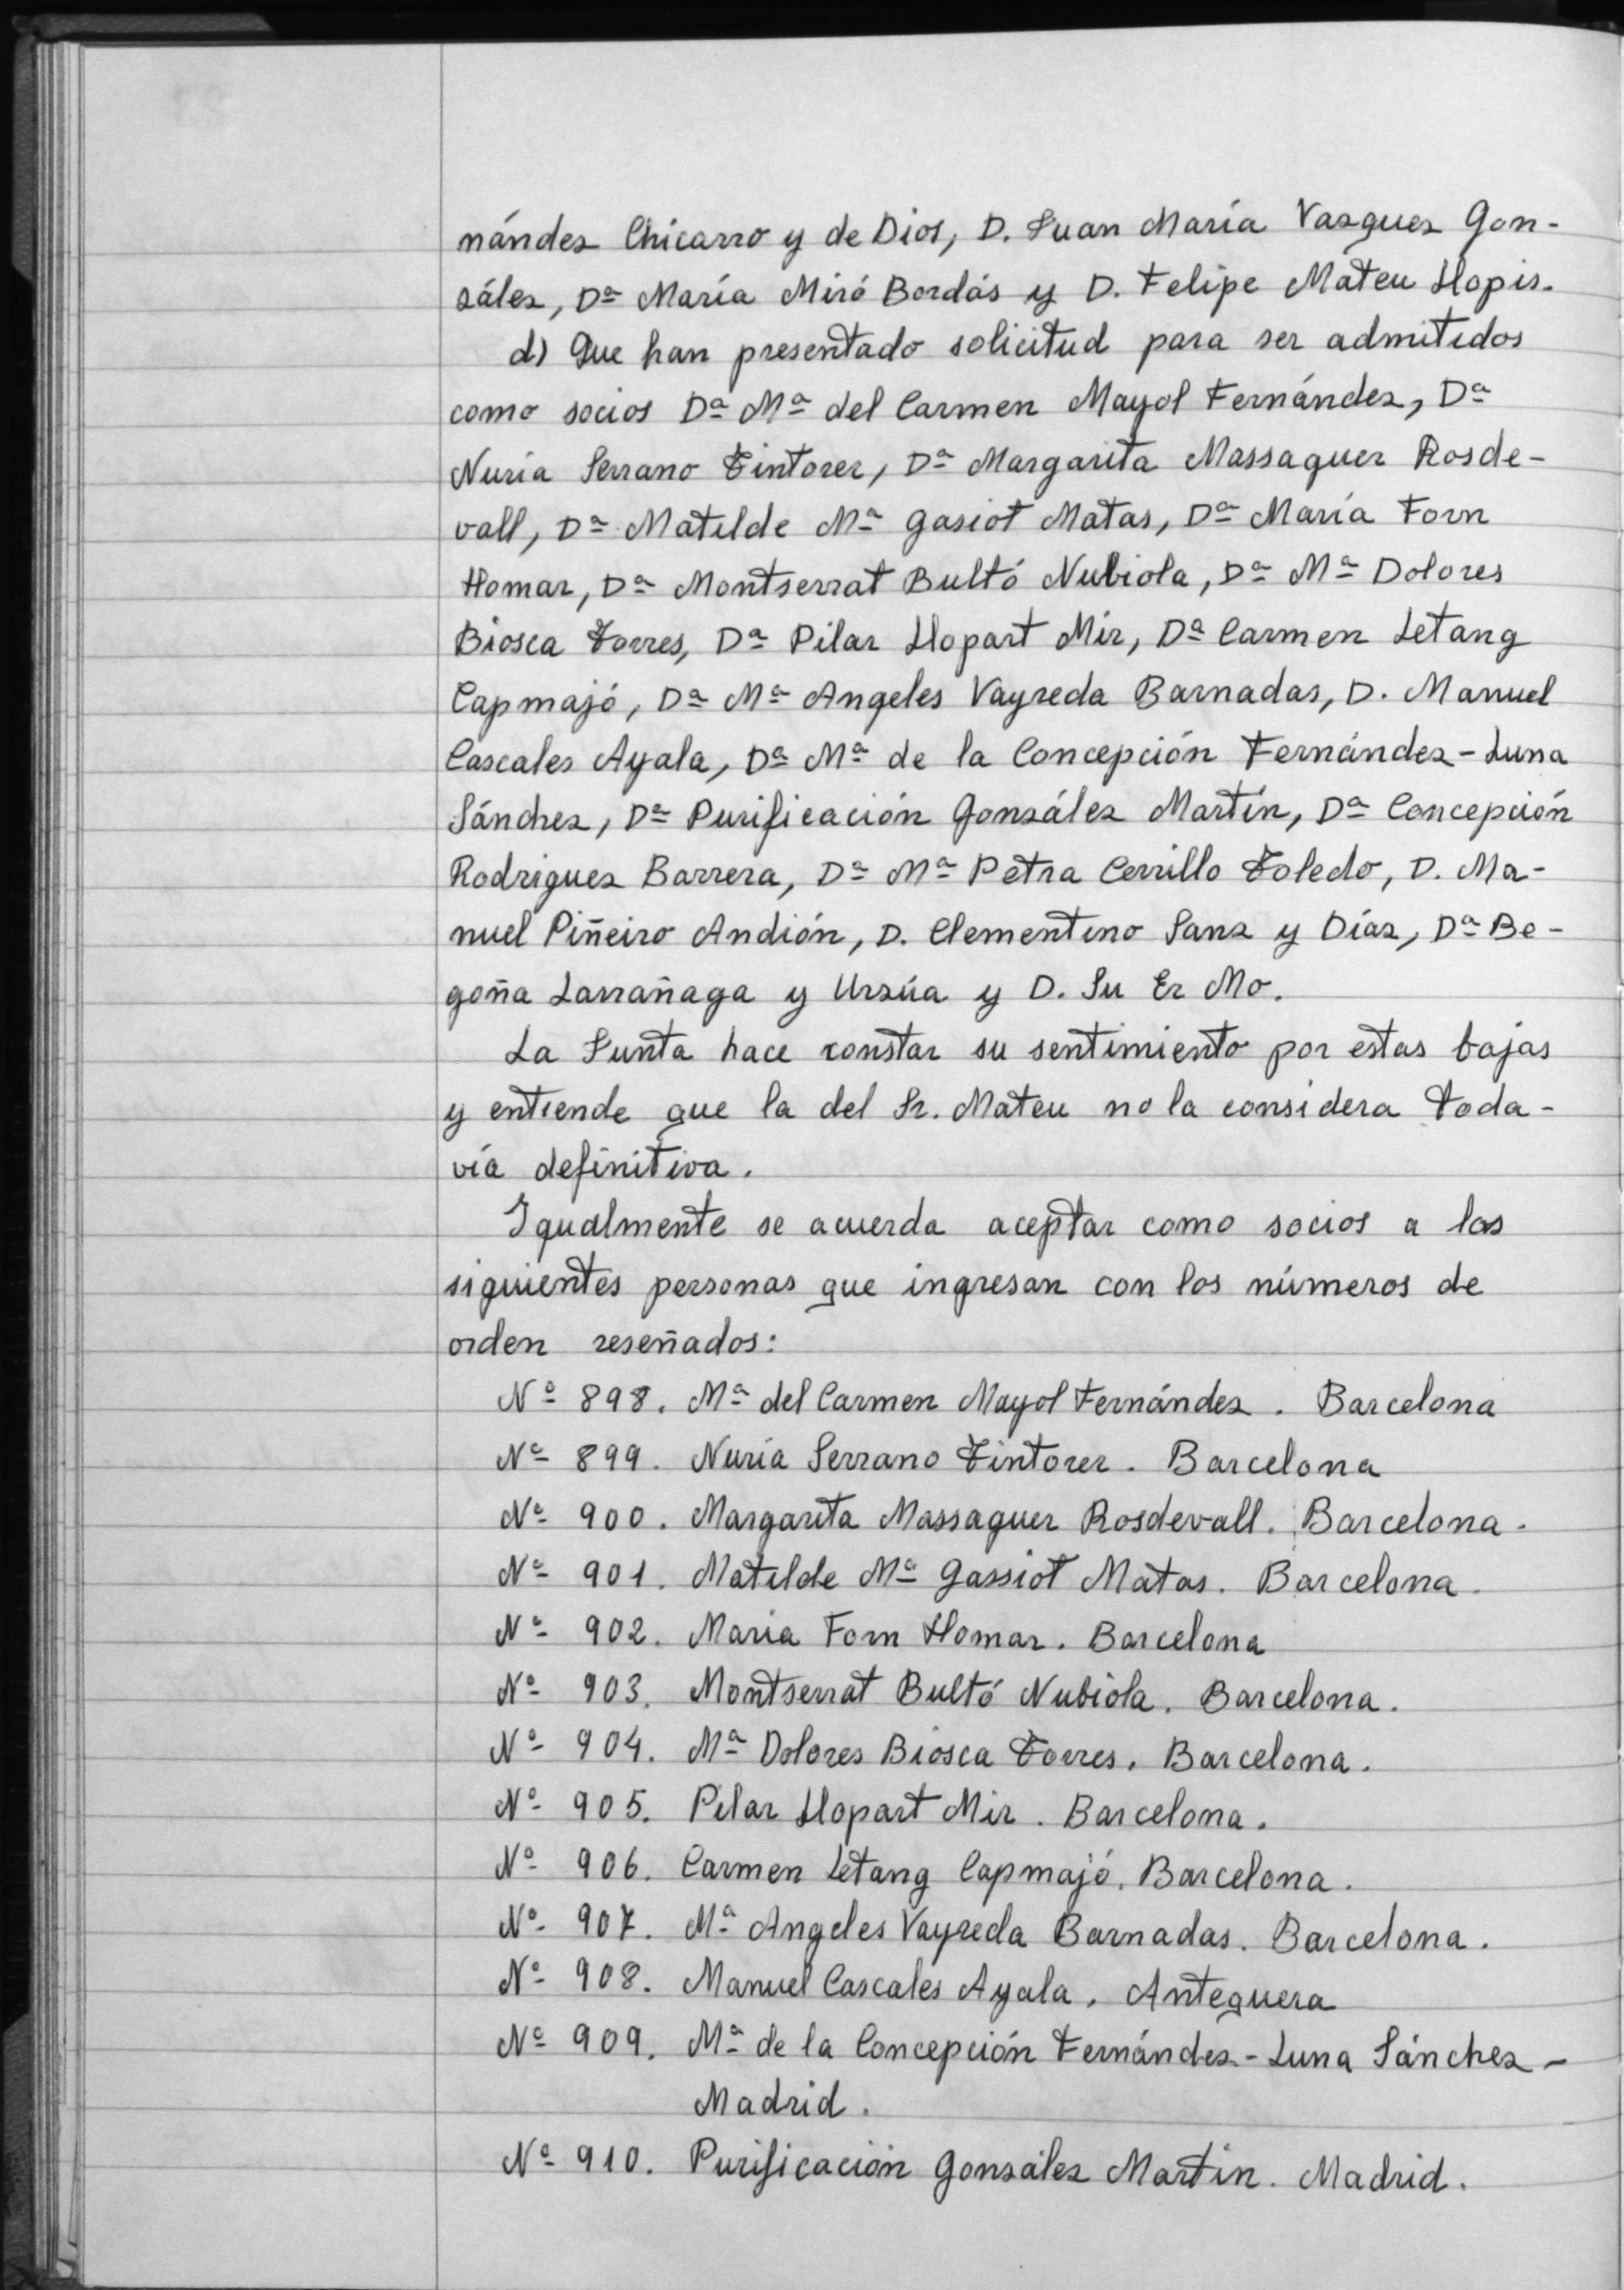 nández Chicarro y de Dios, D. Juan María Vazquez Gon-
zález, Dª María Miró Bordás y D. Felipe Mateu Llopis.
d) Que han presentado solicitud para ser admitidos
como socios Dª Mª del Carmen Mayol Fernández, Dª
Nuria Serrano Tintorer, Dª Margarita Massaguer Rosde-
vall, Dª Matilde Mª Gasiot Matas, Dª María Forn
Homar, Dª Montserrat Bultó Nubiola, Dª Mª Dolores
Biosca Torres, Dª Pilar Llopart Mir, Dª Carmen Letang
Capmajó, Dª Mª Angeles Vayreda Barnadas, D. Manuel
Cascales Ayala, Dª Mª de la Concepción Fernández-Luna
Sánchez, Dª Purificación González Martín, Dª Concepción
Rodriguez Barrera, Dª Mª Petra Cerrillo Toledo, D. Ma-
nuel Piñeiro Andión, D. Clementino Sanz y Díaz, Dª Be-
goña Larrañaga y Urzúa y D. Su Er Mo.
La Junta hace constar su sentimiento por estas bajas
y entiende que la del Sr. Mateu no la considera toda-
vía definitiva.
Igualmente se acuerda aceptar como socios a las
siguientes personas que ingresan con los números de
orden reseñados:
Nº 898. Mª del Carmen Mayol Fernández. Barcelona
Nº 899. Nuria Serrano Tintorer. Barcelona
Nº 900. Margarita Massaguer Rosdevall. Barcelona.
Nº 901. Matilde Mª Gassiot Matas. Barcelona.
Nº 902. Maria Forn Homar. Barcelona
Nº 903. Montserrat Bultó Nubiola. Barcelona.
Nº 904. Mª Dolores Biosca Torres. Barcelona.
Nº 905. Pilar Llopart Mir. Barcelona.
Nº 906. Carmen Letang Capmajó. Barcelona.
Nº 907. Mª Angeles Vayreda Barnadas. Barcelona.
Nº 908. Manuel Cascales Ayala. Antequera
Nº 909. Mª de la Concepción Fernández-Luna Sánchez-
Madrid.
Nº 910. Purificación González Martín. Madrid.